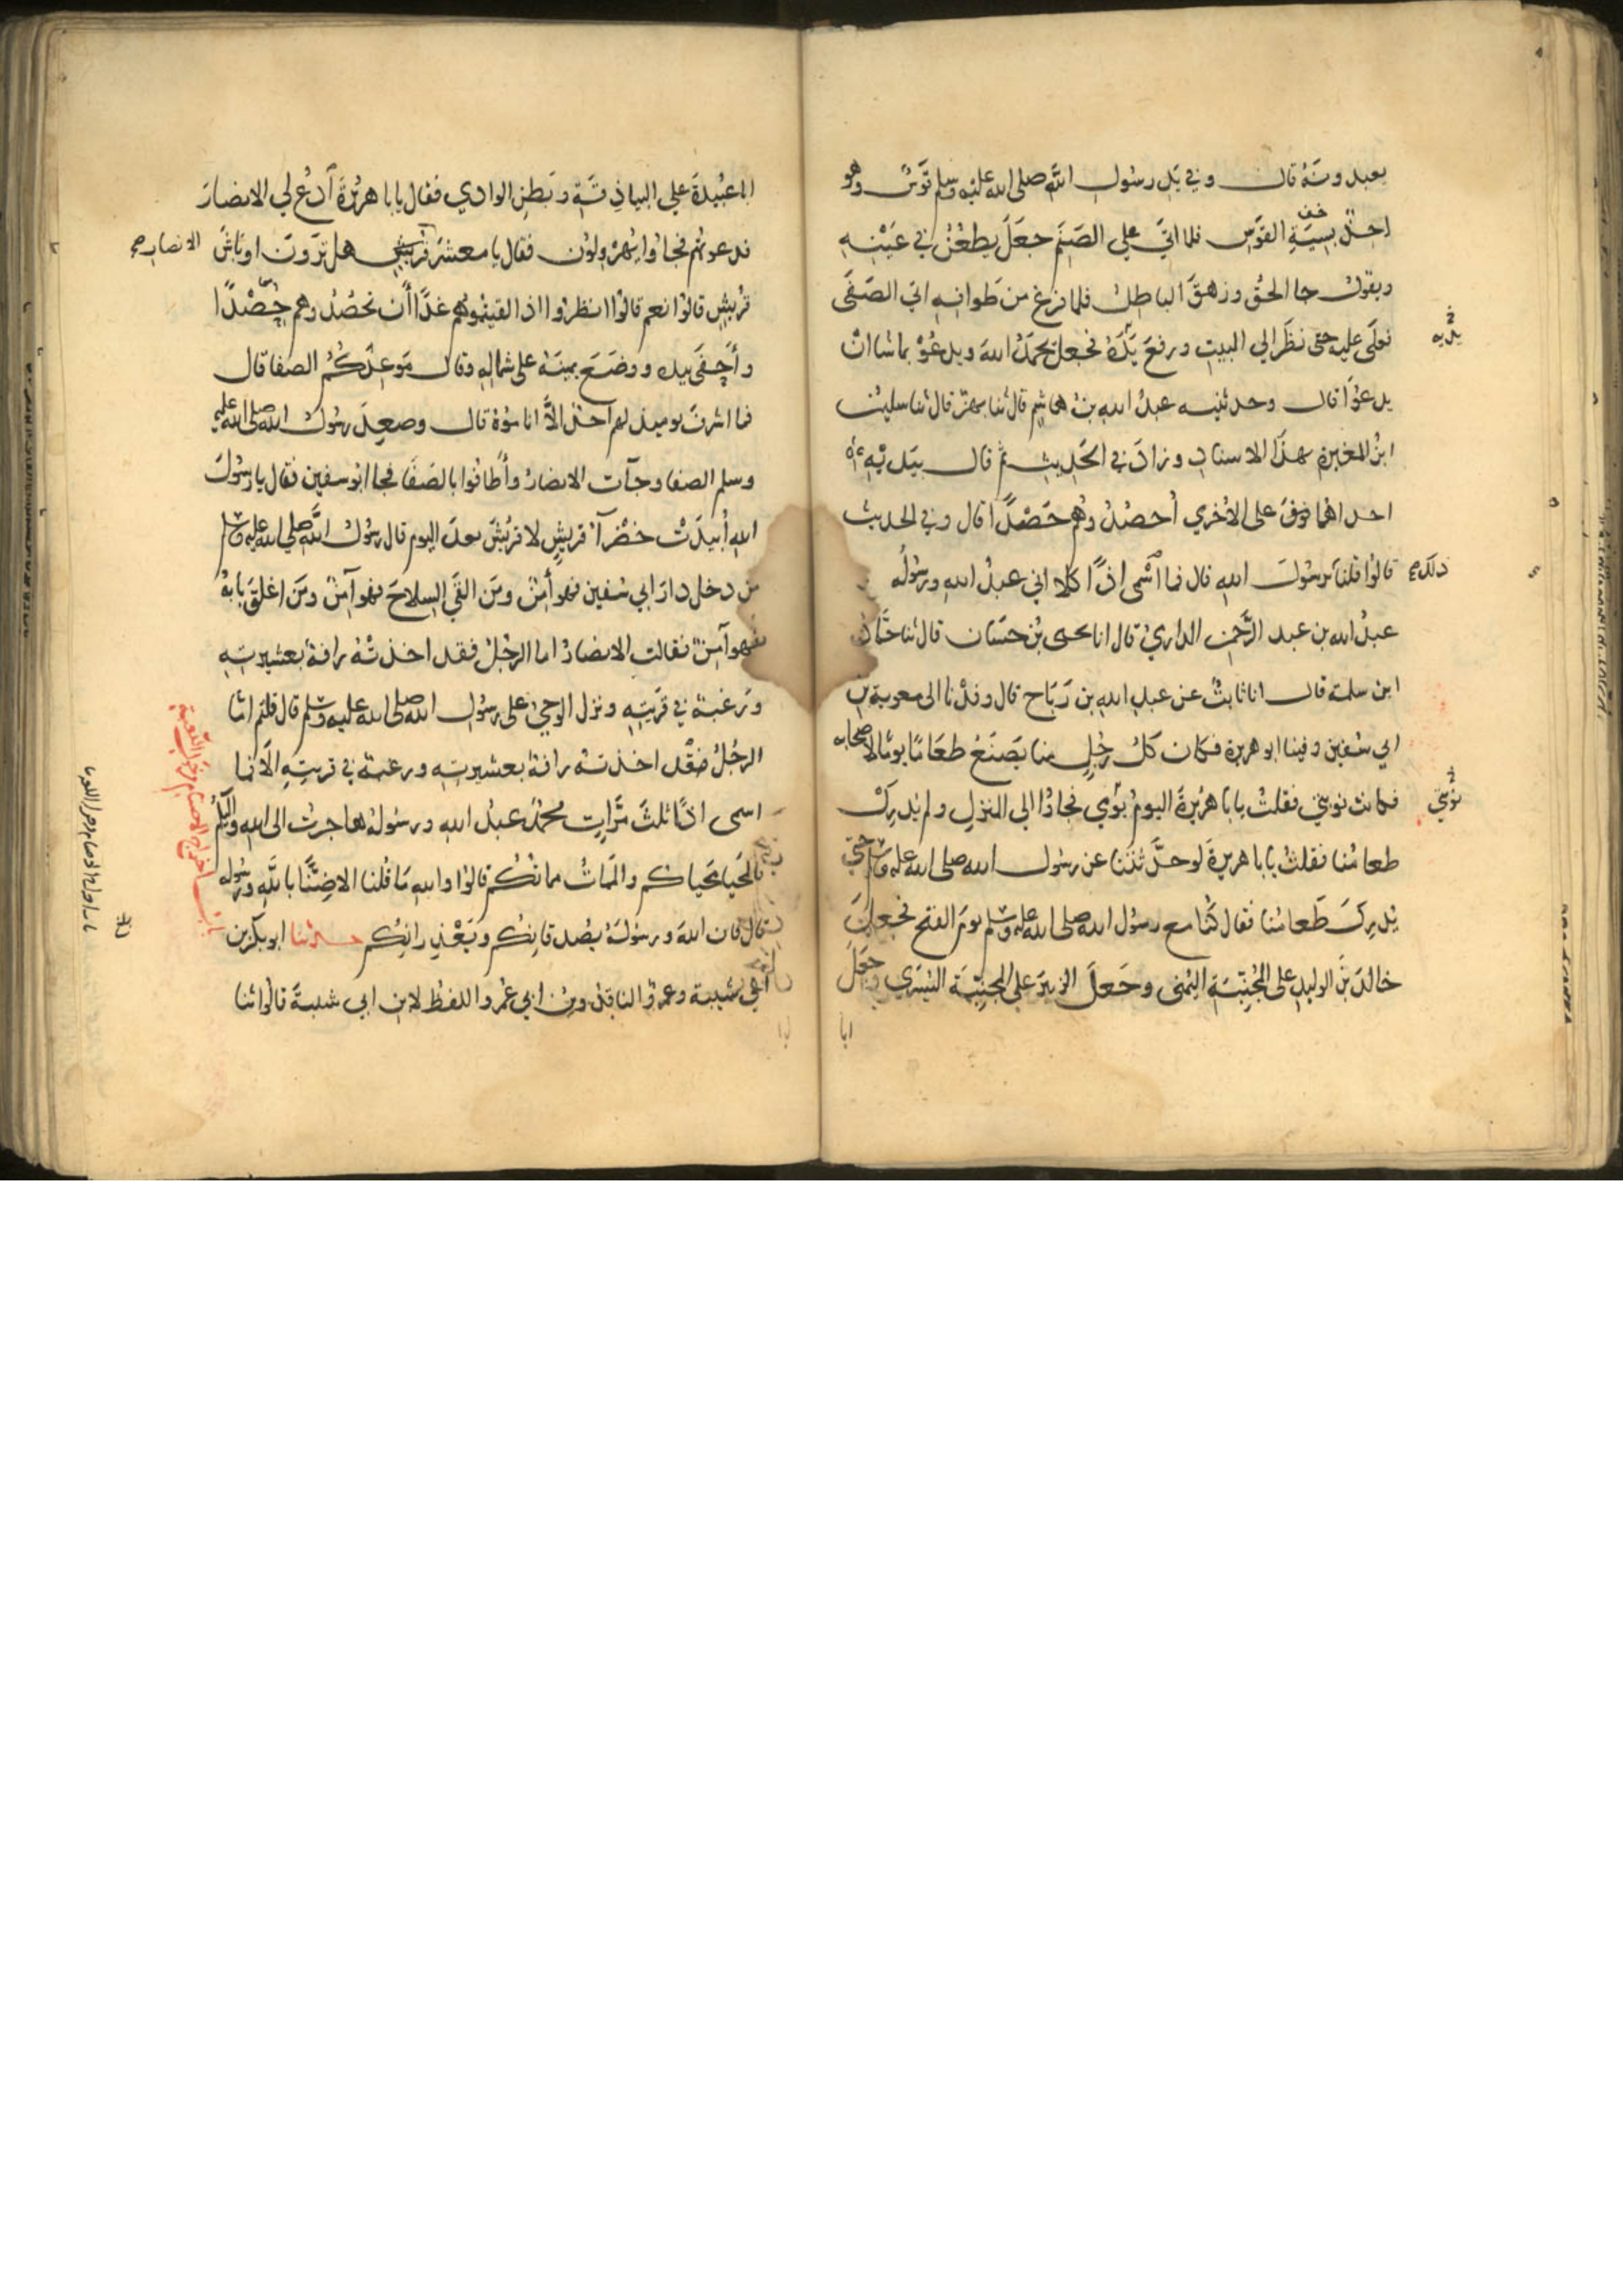 يعبدونه قال وفي يد رسول الله صلى الله عليه وسلم قوس وهو
اخذ بسية القوس فلما اتى على الصنم جعل يطعن في عينه
ويقول جا الحق وزهق الباطل فلما فرغ من طوافه اتى الصفى
فعلى عليه حتى نظر الى البيت ورفع يده فجعل يحمد الله ويدعو بما شا ان
يديه
يدعوا قال وحدثنيه عبد الله بن هاشم قال ثنا بهز قال ثنا سليمن
ابن المغيرة بهذا الاسناد وزاد في الحديث ثم قال بيديه
احداهما فوق على الاخرى احصدوهم حصدا قال وفي الحديث
قالوا قلنا يرسول الله قال فما اسمى اذا كلا اني عبد الله ورسوله
ذلك صح
عبد الله بن عبد الرحمن الدارمي قال انا يحيى بن حسان قال ثنا حماد
ابن سلمة قال انا ثابت عن عبد الله بن رباح قال وفدنا الى معوية بن
ابي سفين وفينا ابو هريرة فكان كل رجل منا يصنع طعاما يوما لاصحابه
فكانت نوبتي فقلت يابا هريرة اليوم يومي فجاوا الى المنزل ولم يدرك
نوبتي
طعامنا فقلت يابا هريرة لو حدثتنا عن رسول الله صلى الله عليه وسلم حتى
يدرك طعامنا فقال كنا مع رسول الله صلى الله عليه وسلم يوم الفتح فجعل
خالد بن الوليد على المجنبة اليمنى وجعل الزبير على المجنبة اليسرى وجعل
ابا
ابا عبيدة على البياذقة وبطن الوادي فقال يابا هريرة ادع لي الانصار
فدعوتهم فجاوا يهرولون فقال يا معشر قريش هل ترون اوباش
الانصار صح
قريش قالوا نعم قالوا انظروا اذا لقيتموهم غدا ان تحصدوهم حصدا
واحفى بيده ووضع يمينه على شماله وقال موعدكم الصفا قال
فما اشرف يوميذ لهم احد الا اناموه قال وصعد رسول الله صلى الله عليه
وسلم الصفا وجآت الانصار واطافوا بالصفا فجا ابو سفين فقال يا رسول
الله ابيدت خضرآ قريش لا قريش بعد اليوم قال رسول الله صلى الله عليه وسلم
من دخل دار ابي سفين فهو آمن ومن القى السلاح فهو آمن ومن اغلق بابه
فهو آمن فقالت الانصار اما الرجل فقد اخذته رافة بعشيرته
ورغبة في قريته ونزل الوحي على رسول الله صلى الله عليه وسلم قال قلتم اما
الرجل فقد اخذته رافة بعشيرته ورغبة في قريته الا فما
اسمى اذا ثلث مرات محمد عبد الله ورسوله هاجرت الى الله واليكم
فالمحيا محياكم والممات مماتكم قالوا والله ما قلنا الا ضنا بالله ورسوله
قال فان الله ورسوله يصدقانكم ويعذرانكم حدثنا ابو بكر بن
ابي شيبة وعمرو الناقد وبن ابي عمر واللفظ لابن ابي شيبة قالوا ثنا
باب اخراج الاصنام من حول الكعبة